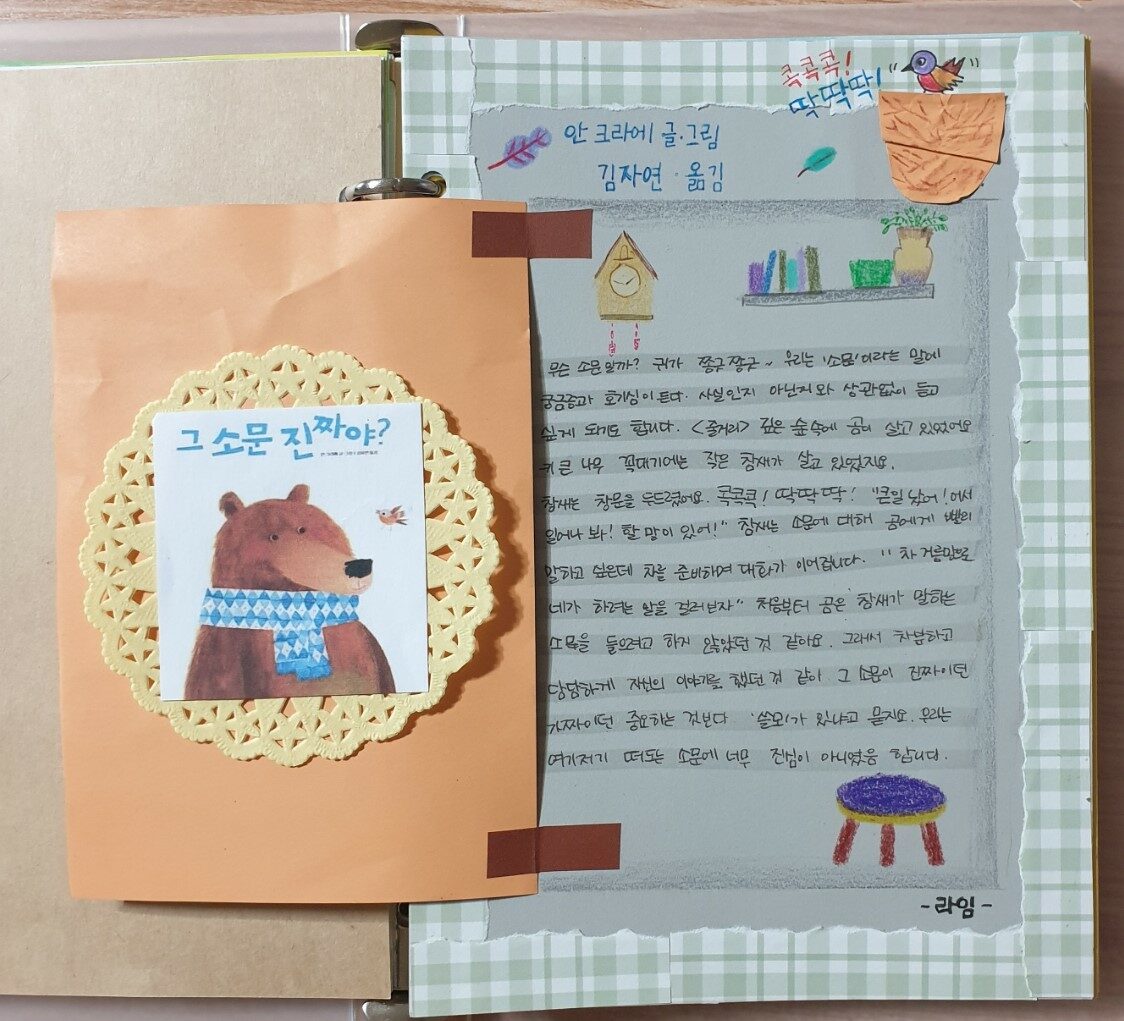 그 소문 진짜야?
콕콕콕!
딱딱딱!
안 크라에 글·그림
김자연·옮김
무슨 소문일까? 귀가 쫑긋쫑긋~ 우리는 '소문'이라는 말에
궁금증과 호기심이 든다. 사실인지 아닌지와 상관없이 듣고
싶게 되기도 합니다. <줄거리> 깊은 숲속에 곰이 살고 있었어요
키 큰 나무 꼭대기에는 작은 참새가 살고 있었지요.
참새는 창문을 두드렸어요. 콕콕콕! 딱딱딱! "큰일 났어! 어서
일어나 봐! 할 말이 있어!" 참새는 소문에 대해 곰에게 빨리
말하고 싶은데 차를 준비하며 대화가 이어집니다. "차 거름망으로
네가 하려는 말을 걸러보자" 처음부터 곰은 참새가 말하는
소문을 들으려고 하지 않았던 것 같아요. 그래서 차분하고
당당하게 자신의 이야기를 했던 것 같이 그 소문이 진짜이던
가짜이던 중요하는 것보다 '쓸모'가 있냐고 묻지요. 우리는
여기저기 떠도는 소문에 너무 진심이 아니였음 합니다.
-라임-